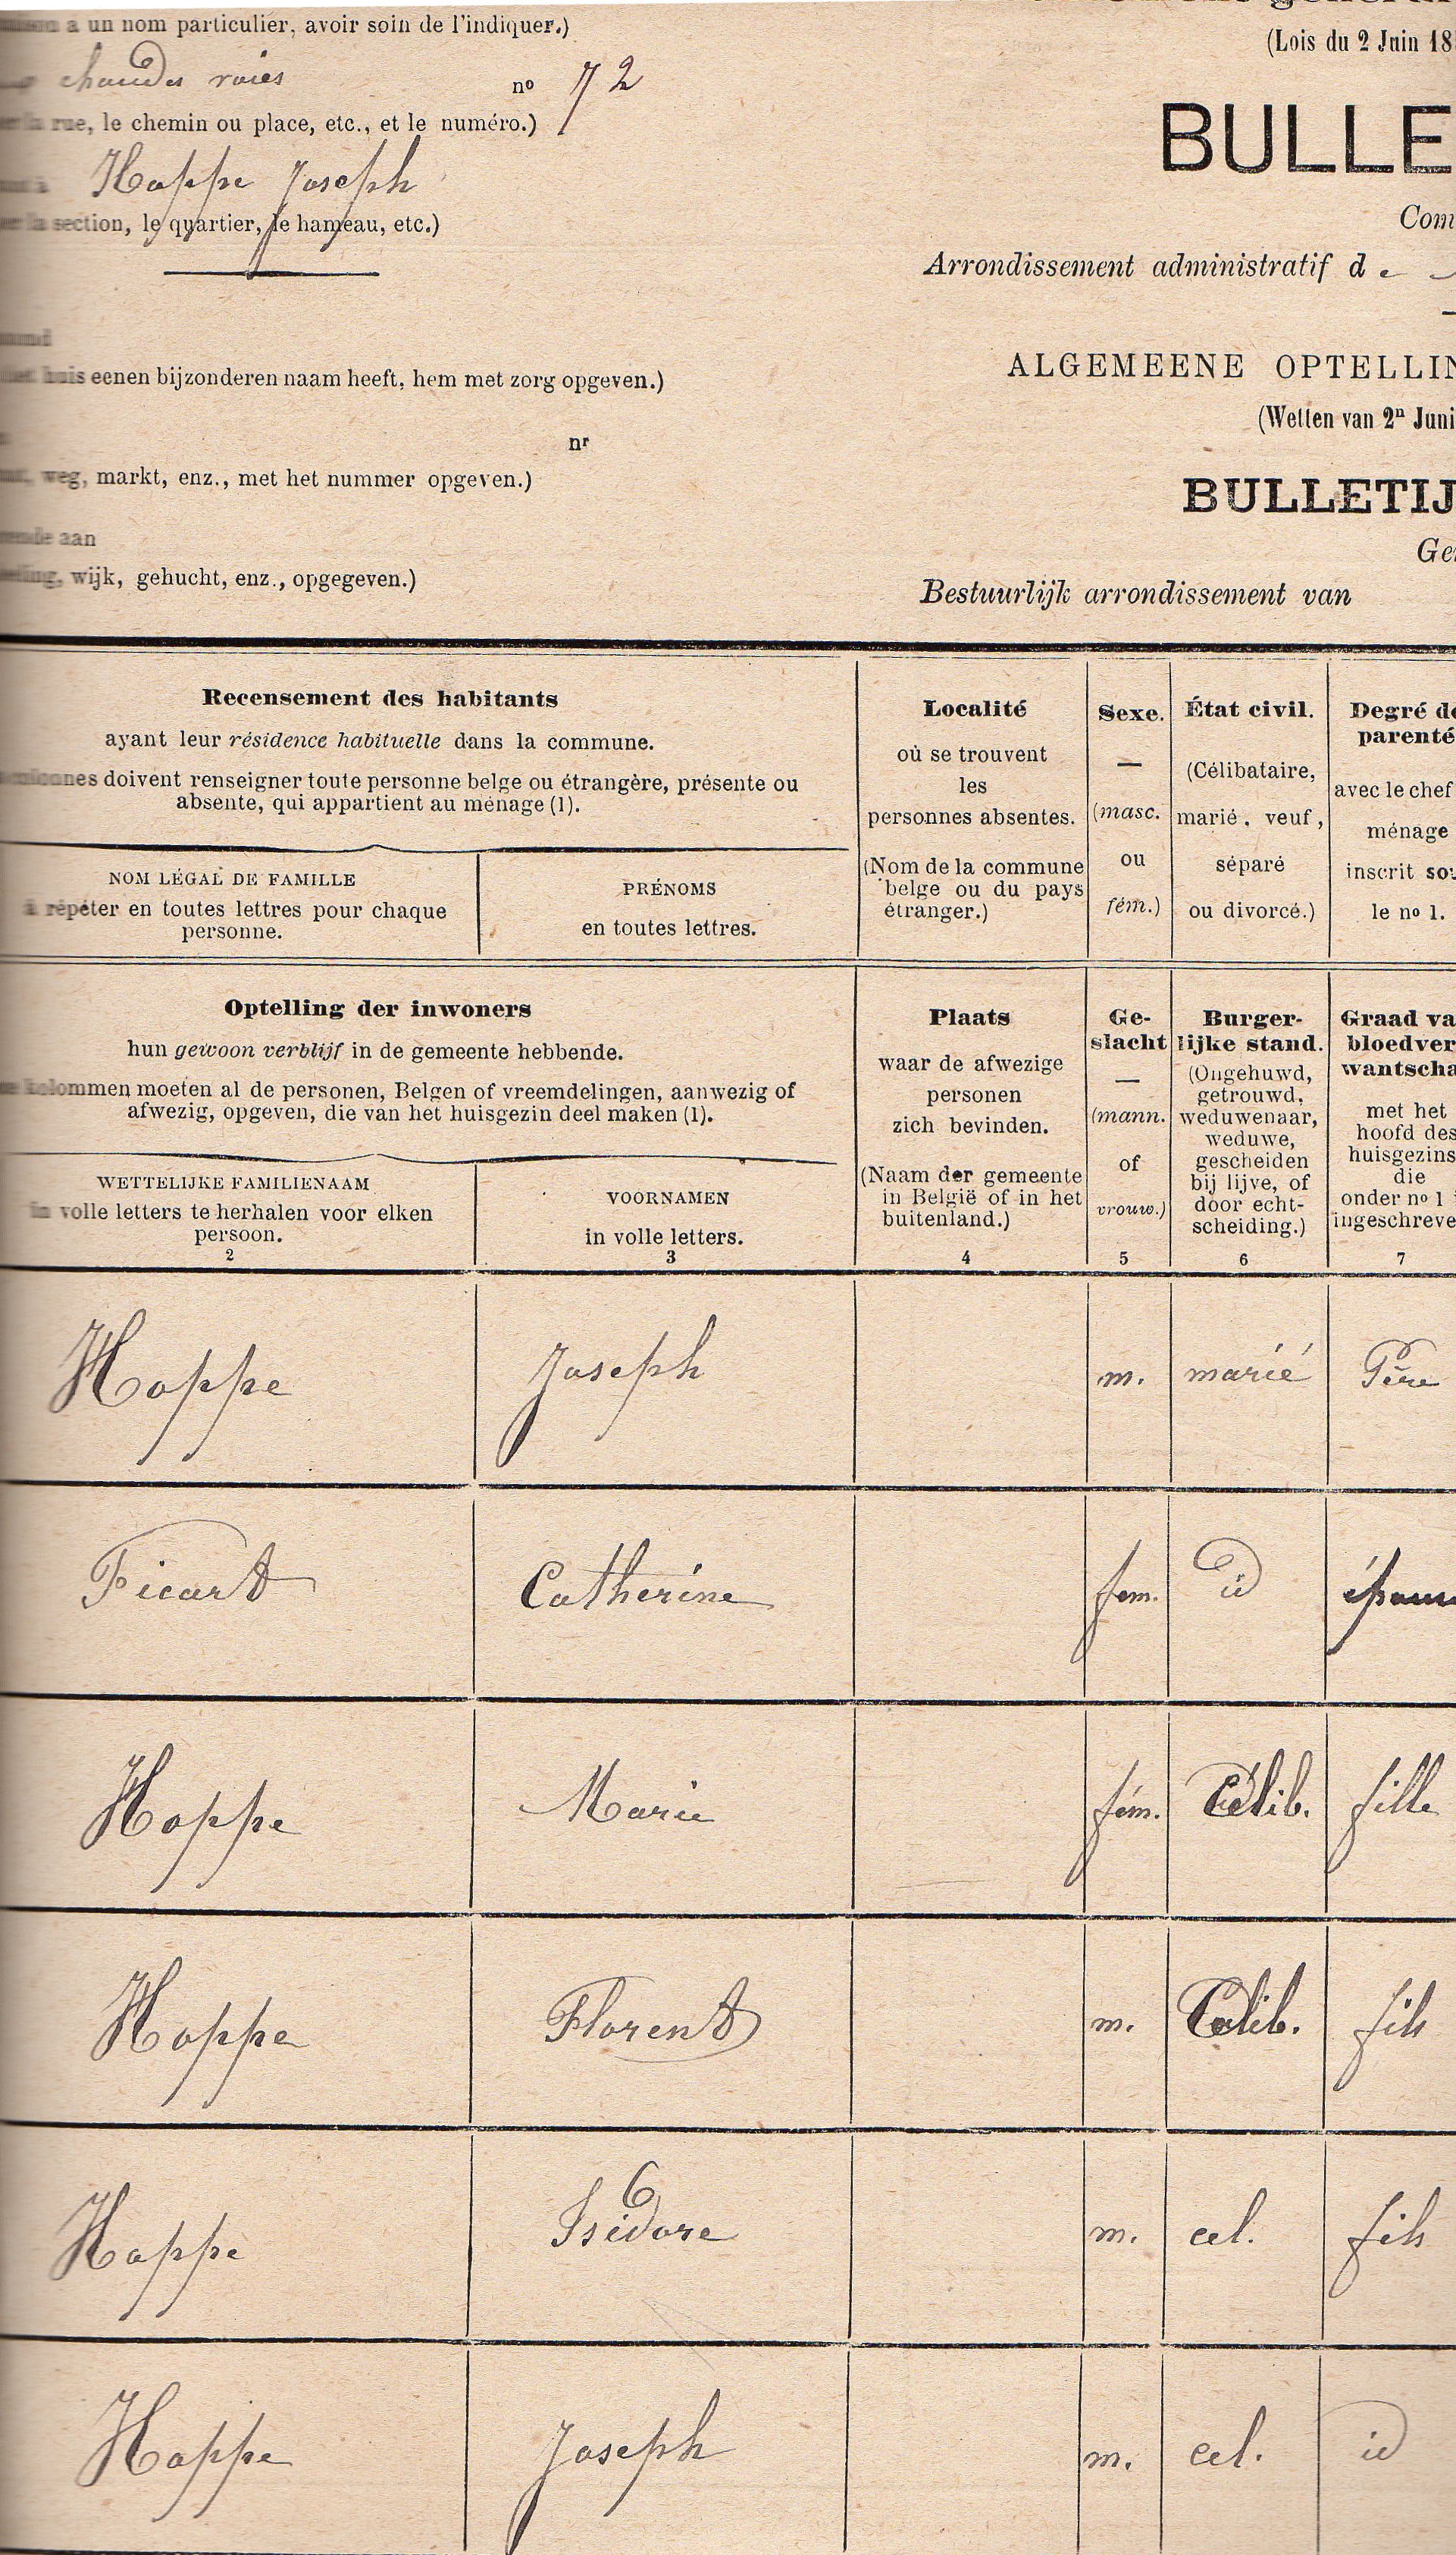 a un nom particulier, avoir soin de l'indiquer.)
chaudes voies nº 72
la rue, le chemin ou place, etc., et le numéro.)
Hoppe Joseph
la section, le quartier, le hameau, etc.)
huis eenen bijzonderen naam heeft, hem met zorg opgeven.)
nr
weg, markt, enz., met het nummer opgeven.)
aan
wijk, gehucht, enz., opgegeven.)
(Lois du 2 Juin 18
BULLE
Com
Arrondissement administratif de
ALGEMEENE OPTELLIN
(Wetten van 2n Juni
BULLETIJ
Ge
Bestuurlijk arrondissement van
Recensement des habitants
ayant leur résidence habituelle dans la commune.
doivent renseigner toute personne belge ou étrangère, présente ou
absente, qui appartient au ménage (1).
NOM LÉGAL DE FAMILLE
à répéter en toutes lettres pour chaque
personne.
PRÉNOMS
en toutes lettres.
Localité
où se trouvent
les
personnes absentes.
(Nom de la commune
belge ou du pays
étranger.)
Sexe.
—
(masc.
ou
fém.)
État civil.
(Célibataire,
marié, veuf,
séparé
ou divorcé.)
Degré de
parenté
avec le chef
ménage
inscrit sou
le nº 1.
Optelling der inwoners
hun gewoon verblijf in de gemeente hebbende.
kolommen moeten al de personen, Belgen of vreemdelingen, aanwezig of
afwezig, opgeven, die van het huisgezin deel maken (1).
WETTELIJKE FAMILIENAAM
in volle letters te herhalen voor elken
persoon.
2
VOORNAMEN
in volle letters.
3
Plaats
waar de afwezige
personen
zich bevinden.
(Naam der gemeente
in België of in het
buitenland.)
4
Ge-
slacht
—
(mann.
of
vrouw.)
5
Burger-
lijke stand.
(Ongehuwd,
getrouwd,
weduwenaar,
weduwe,
gescheiden
bij lijve, of
door echt-
scheiding.)
6
Graad va
bloedver
wantscha
met het
hoofd des
huisgezins
die
onder nº 1
ingeschreve
7
Hoppe Joseph m. marié Père
Picart Catherine fem. id épouse
Hoppe Marie fém. Célib. fille
Hoppe Florent m. Célib. fils
Hoppe Isidore m. cel. fils
Hoppe Joseph m. cel. id